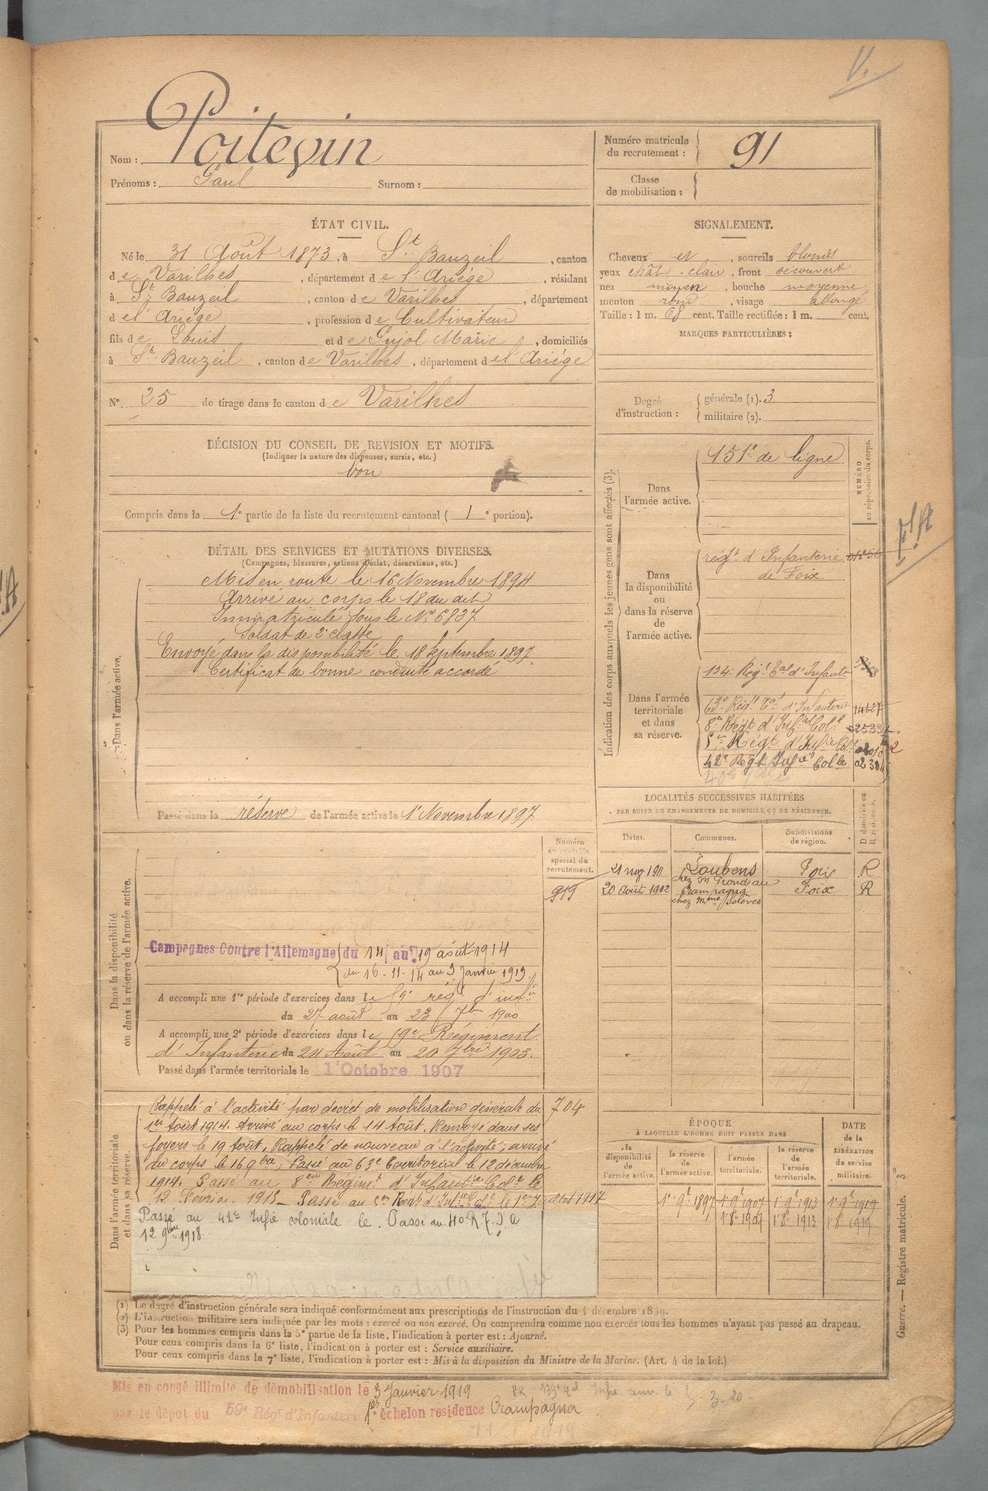 V.
Nom : Poitevin
Prénoms : Paul Surnom :
Numéro matricule du recrutement : 91
Classe de mobilisation :
ÉTAT CIVIL.
Né le 31 Août 1873, à St Bauzeil, canton
de Varilhes, département de l'Ariége, résidant
à St Bauzeil, canton de Varilhes, département
de l'Ariége, profession de Cultivateur
fils de Louis et de Pujol Marie, domiciliés
à St Bauzeil, canton de Varilhes, département de l'Ariége
N° 25 de tirage dans le canton de Varilhes
SIGNALEMENT.
Cheveux et, sourcils blonds
yeux chât-clair, front découvert
nez moyen, bouche moyenne
menton rond, visage allongé
Taille : 1 m. 68 cent. Taille rectifiée : 1 m. cent.
MARQUES PARTICULIÈRES :
Degré d'instruction :
générale (1). 3
militaire (2).
DÉCISION DU CONSEIL DE REVISION ET MOTIFS.
(Indiquer la nature des dispenses, sursis, etc.)
bon
Compris dans la 1e partie de la liste du recrutement cantonal ( 1 e portion).
DÉTAIL DES SERVICES ET MUTATIONS DIVERSES.
(Campagnes, blessures, actions d'éclat, décorations, etc.)
Dans l'armée active.
Mis en route le 16 Novembre 1894
Arrivé au corps le 18 du dit
Immatriculé sous le N° 6837
Soldat de 2e classe
Envoyé dans la disponibilité le 18 Septembre 1897
Certificat de bonne conduite accordé
Passé dans la réserve de l'armée active le 1er Novembre 1897
Indication des corps auxquels les jeunes gens sont affectés (3).
NUMÉRO au répertoire du corps.
Dans l'armée active.
151e de ligne
Dans la disponibilité ou dans la réserve de l'armée active.
regt. d'Infanterie
de Foix
Dans l'armée territoriale et dans sa réserve.
134e Regt Eal d'Infantie
63e Regt Tal d'Infanterie 14127
8e Regt d'Infie Colle
5e Regt d'Infie Cole
42e Regt Infie Colle
LOCALITÉS SUCCESSIVES HABITÉES
PAR SUITE DE CHANGEMENTS DE DOMICILE OU DE RÉSIDENCE.
Dates. Communes. Subdivisions de région. D domicile ou R résidence.
Loubens Foix R
20 Août 1912 Crampagna Foix R
Numéro au contrôle spécial du recrutement.
919
Dans la disponibilité ou dans la réserve de l'armée active.
Campagnes Contre l'Allemagne du 14 au 19 août 1914
du 16-11-14 au 3 Janvier 1919
A accompli une 1re période d'exercices dans le 59e régt d'infie
du 27 août au 23 7bre 1900
A accompli une 2e période d'exercices dans le Régiment
d'Infanterie du 24 Août au 20 7bre 1903.
Passé dans l'armée territoriale le 1er Octobre 1907
Dans l'armée territoriale et dans sa réserve.
704
Rappelé à l'activité par decret de mobilisation générale du
1er Août 1914. Arrivé au corps le 14 Août. Renvoyé dans ses
foyers le 19 Août. Rappelé de nouveau à l'activité, arrivé
au corps le 16 9bre. Passé au 63e territorial le 12 décembre
1914. Passé au 8e Regimt d'Infantie Cole le
12 Février 1915 - Passé au 5e Regt d'Infie Cole le 1er Juillet 1917
Passé au 42e Infie coloniale le. Passé au 40e R.I. le
12 9bre 1918
ÉPOQUE
À LAQUELLE L'HOMME DOIT PASSER DANS
la disponibilité de l'armée active. la réserve de l'armée active. l'armée territoriale. la réserve de l'armée territoriale. DATE de la LIBÉRATION du service militaire.
1er 9e 1897 1er 9e 1907 1er 9e 1913 1er 9e 1919
1 8e 1907 1 8e 1913 1 8e 1919
(1) Le degré d'instruction générale sera indiqué conformément aux prescriptions de l'instruction du 4 décembre 1889.
(2) L'instruction militaire sera indiquée par les mots : exercé ou non exercé. On comprendra comme non exercés tous les hommes n'ayant pas passé au drapeau.
(3) Pour les hommes compris dans la 5e partie de la liste, l'indication à porter est : Ajourné.
Pour ceux compris dans la 6e liste, l'indication à porter est : Service auxiliaire.
Pour ceux compris dans la 7e liste, l'indication à porter est : Mis à la disposition du Ministre de la Marine. (Art. 4 de la loi.)
Guerre. — Registre matricule. 3
Mis en congé illimité de démobilisation le 3 Janvier 1919
par le dépôt du 59e Régt d'Infanterie 1er échelon résidence Crampagna